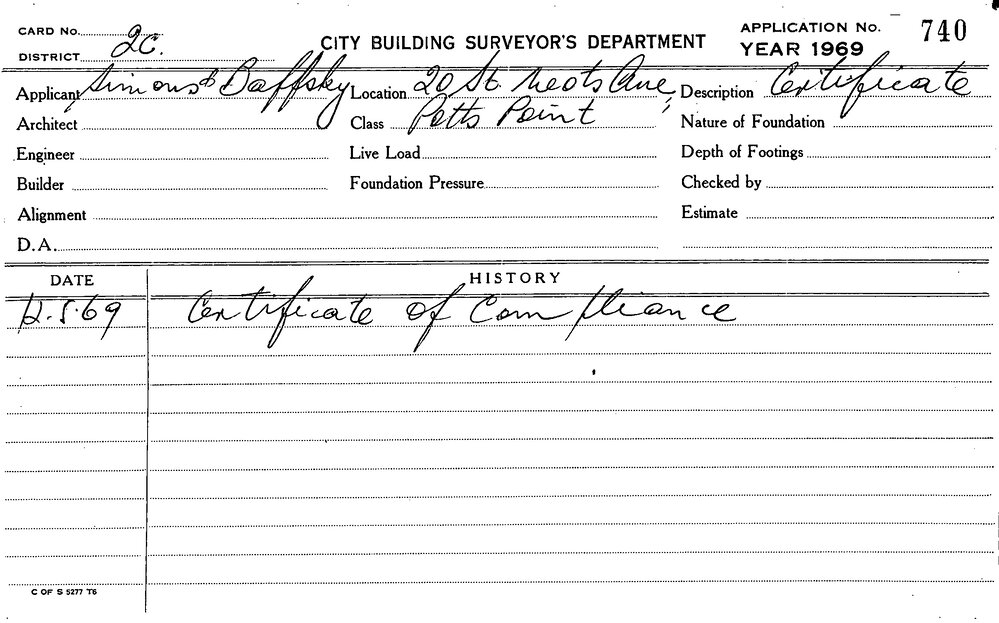 CARD No. APPLICATION No. 740
DISTRICT 2C. CITY BUILDING SURVEYOR'S DEPARTMENT YEAR 1969
Applicant Simons & Baffsky Location 20 St. Neots Ave, Description Certificate
Architect Class Potts Point Nature of Foundation
Engineer Live Load Depth of Footings
Builder Foundation Pressure Checked by
Alignment Estimate
D.A.
DATE HISTORY
12.5.69 Certificate of Compliance
C OF S 5277 T6